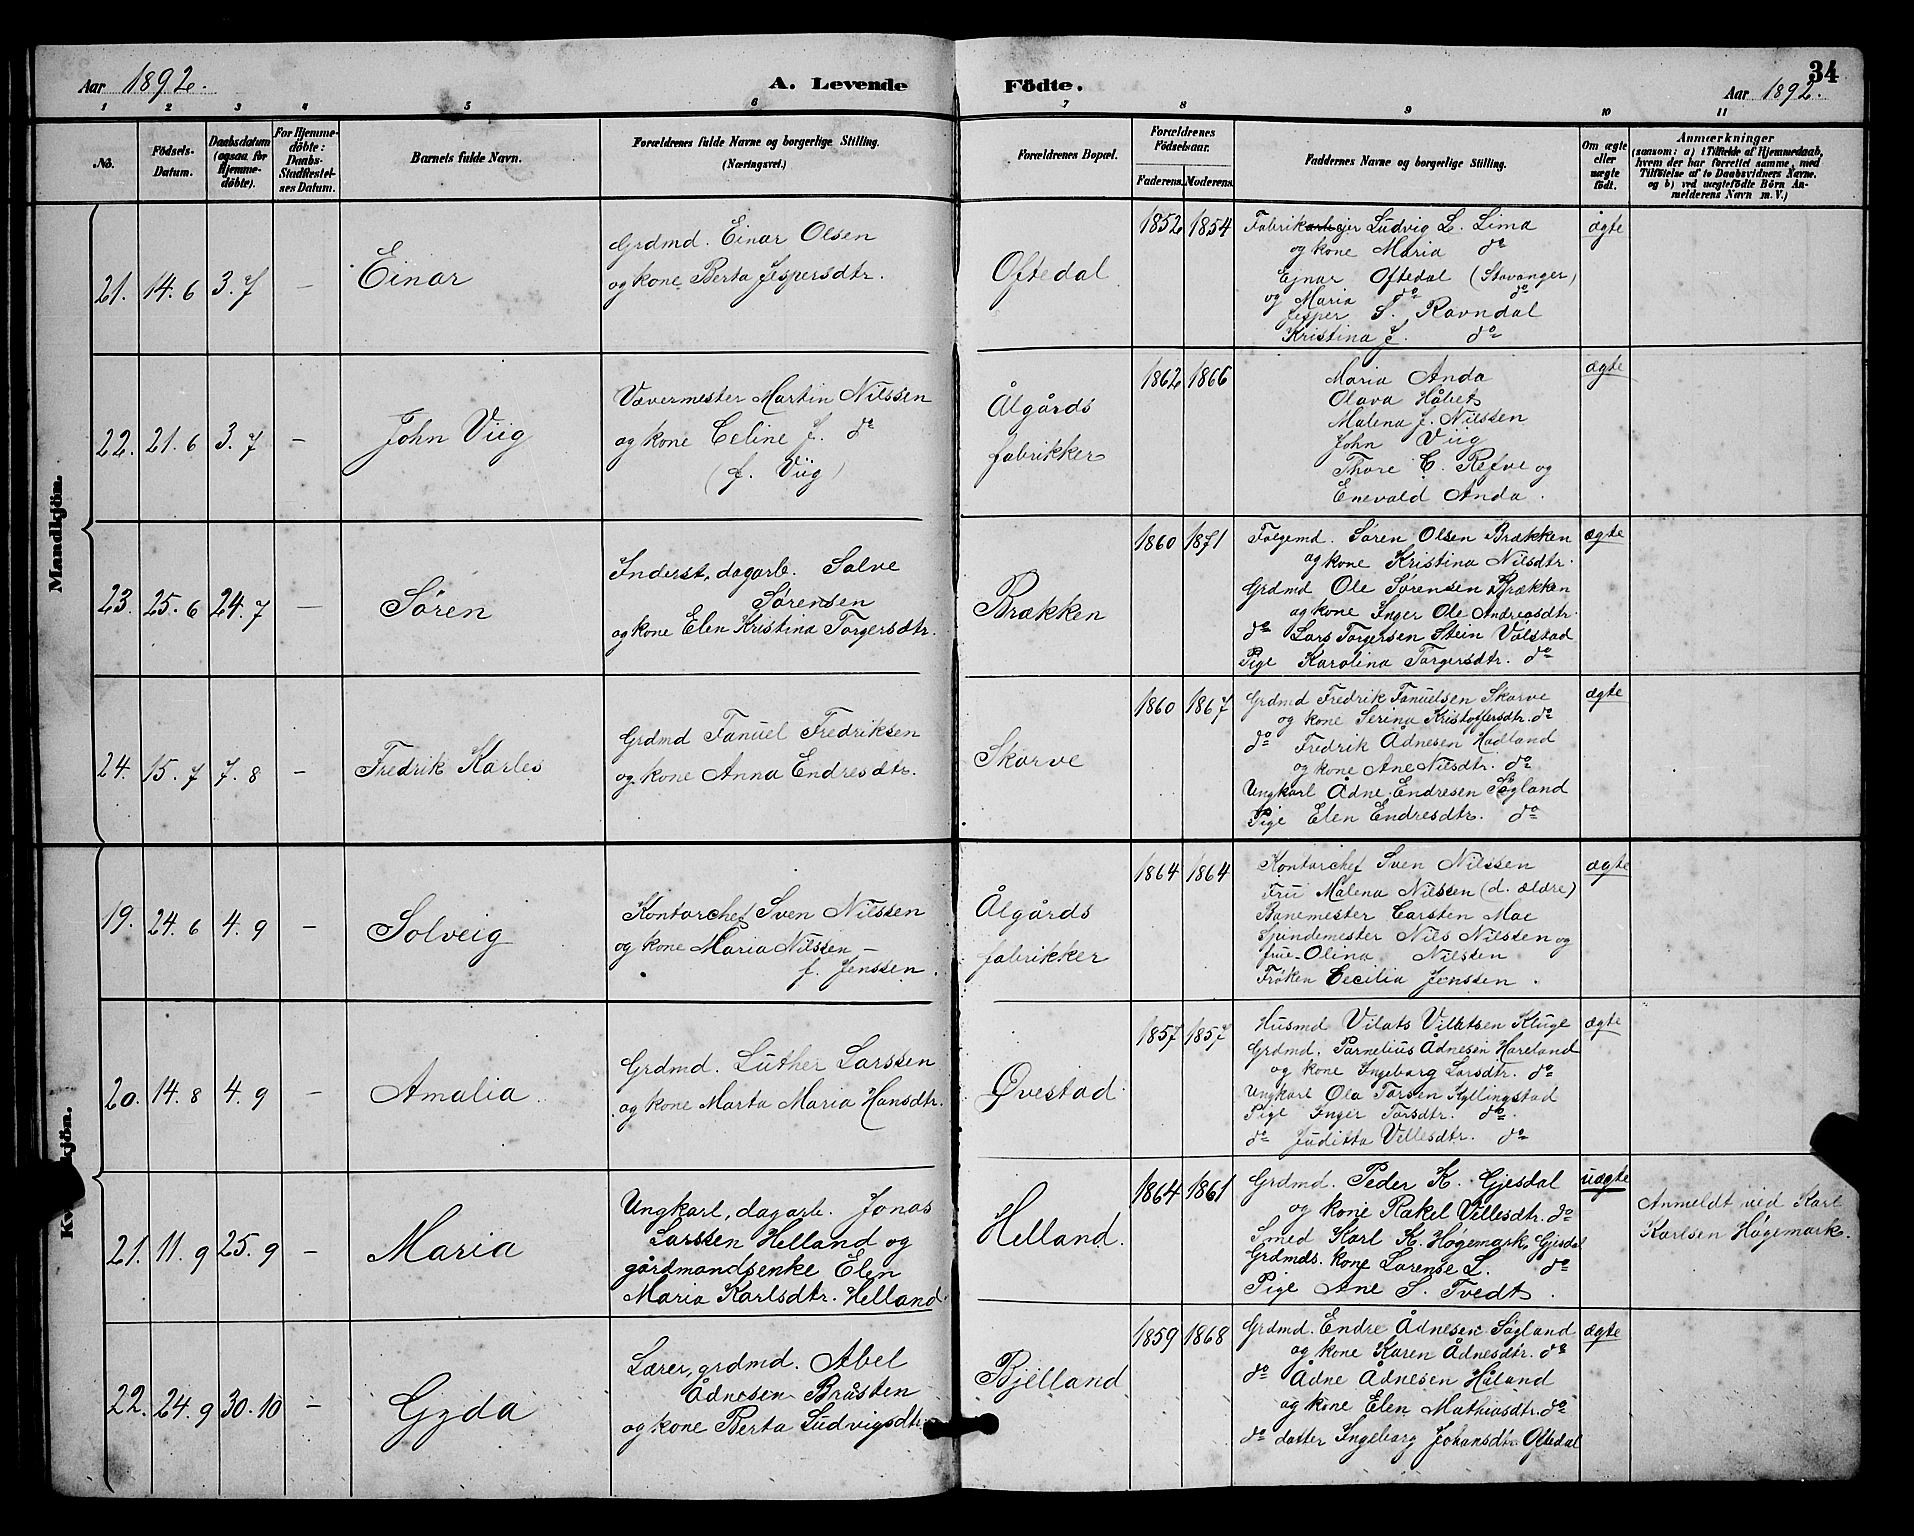 34
Aar 1892.
A. Levende
Födte.
Aar 1892.
1 2 3 4 5 6 7 8 9 10 11
No.
Födsels-
Datum.
Daabsdatum
(ogsaa for
Hjemme-
döbte).
For Hjemme-
döbte:
Daabs-
Stadfæstel-
ses Datum.
Barnets fulde Navn.
Forældrenes fulde Navne og borgerlige Stilling.
(Næringsvei.)
Forældrenes Bopæl.
Forældrenes
Födselsaar.
Faderens. Moderens.
Faddernes Navne og borgerlige Stilling.
Om ægte
eller
uægte
født.
Anmærkninger
(saasom: a) i Tilfælde af Hjemmedaab,
hvem der har forrettet samme, med
Tilföielse af to Daabsvidners Navne,
og b) ved uægtefödte Börn An-
melderens Navn m. V.)
Mandkjön.
21. 14.6 3.7 —
Einar
Grdmd. Einar Olsen
og kone Berta Jespersdtr.
Oftedal
1852 1854
Fabrikejer Ludvig L. Lima
og kone Maria do
Ejnar Oftedal (Stavanger)
og Maria do do
Jesper S. Ravndal
Kristina J. do
ægte
22. 21.6 3.7 —
John Viig
Vævermester Martin Nilssen
og kone Celine J. do
(f. Viig)
Ålgårds
fabrikker
1862 1866
Maria Anda
Olava Håbet
Malena J. Nilssen
John Viig
Thore C. Refve og
Enevald Anda.
ægte
23. 25.6 24.7 —
Sören
Inderst, dagarb. Salve
Sørensen
og kone Elen Kristina Torgersdtr.
Brækken
1860 1871
Folgemd. Søren Olsen Brækken
og kone Kristina Nilsdtr.
Grdmd Ole Sørensen Brækken
og kone Inger Ole Andreasdtr.
do Lars Torgersen Stein Válstad
Pige Karolina Torgersdtr. do
ægte
24. 15.7 7.8 —
Fredrik Karles
Grdmd Fanuel Fredriksen
og kone Anna Endresdtr.
Skarve
1860 1867
Grdmd Fredrik Fanuelsen Skarve
og kone Serina Kristoffersdtr. do
do Fredrik Ådnesen Hadland
og kone Ane Nilsdtr. do
Ungkarl Ådne Endresen Søgland
Pige Elen Endresdtr. do
ægte
19. 24.6 4.9 —
Solveig
Kontorchef Sven Nilssen
og kone Maria Nilssen —
f. Jenssen.
Ålgårds
fabrikker
1864 1864
Kontorchef Sven Nilssen
Fru Malena Nilssen (d. ældre)
Banemester Carsten Moe
Spindemester Nils Nilssen og
frue Olina Nilssen
Frøken Cecilia Jenssen.
ægte
Kv
kjön.
20. 14.8 4.9 —
Amalia
Grdmd. Luther Larssen
og kone Marta Maria Hansdtr.
Øvestad
1857 1857
Husmd Vilats Villatsen Kluge
Grdmd. Parnelius Ådnesen Hareland
og kone Ingeborg Larsdtr. do
Ungkarl Ola Torsen Kyllingstad
Pige Inger Torsdtr. do.
do Juditta Villesdtr. do
ægte
21. 11.9 25.9 —
Maria
Ungkarl, dagarb. Jonas
Larssen Helland og
gårdmandsenke Elen
Maria Karlsdtr. Helland
Helland.
1864 1861
Grdmd. Peder K. Gjesdal
og kone Rakel Villesdtr. do
Smed Karl K. Høgemark, Gjesdal
Grdmds. kone Lorense L. do
Pige Ane S. Tvedt.
uægte
Anmeldt ved Karl
Karlsen Høgemark.
22. 24.9 30.10 —
Gyda
Lærer, grdmd. Abel
Ådnesen Bråsten
og kone Berta Ludvigsdtr.
Bjelland
1859 1868
Grdmd. Endre Ådnesen Søgland
og kone Karen Ådnesdtr. do
do Ådne Ådnesen Håland
og kone Elen Mathiasdtr. do
do datter Ingeborg Johansdtr. Oftedal
ægte